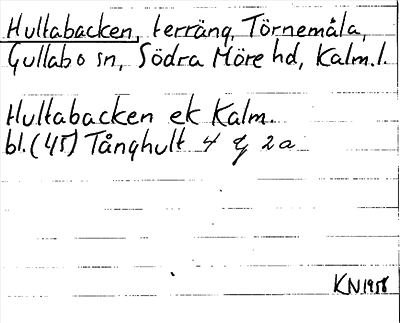 Hultabacken, terräng, Törnemåla,
Gullabo sn, Södra Möre hd, Kalm.l.
Hultabacken ek Kalm.
bl.(45) Tånghult 4 g 2a
KN1958